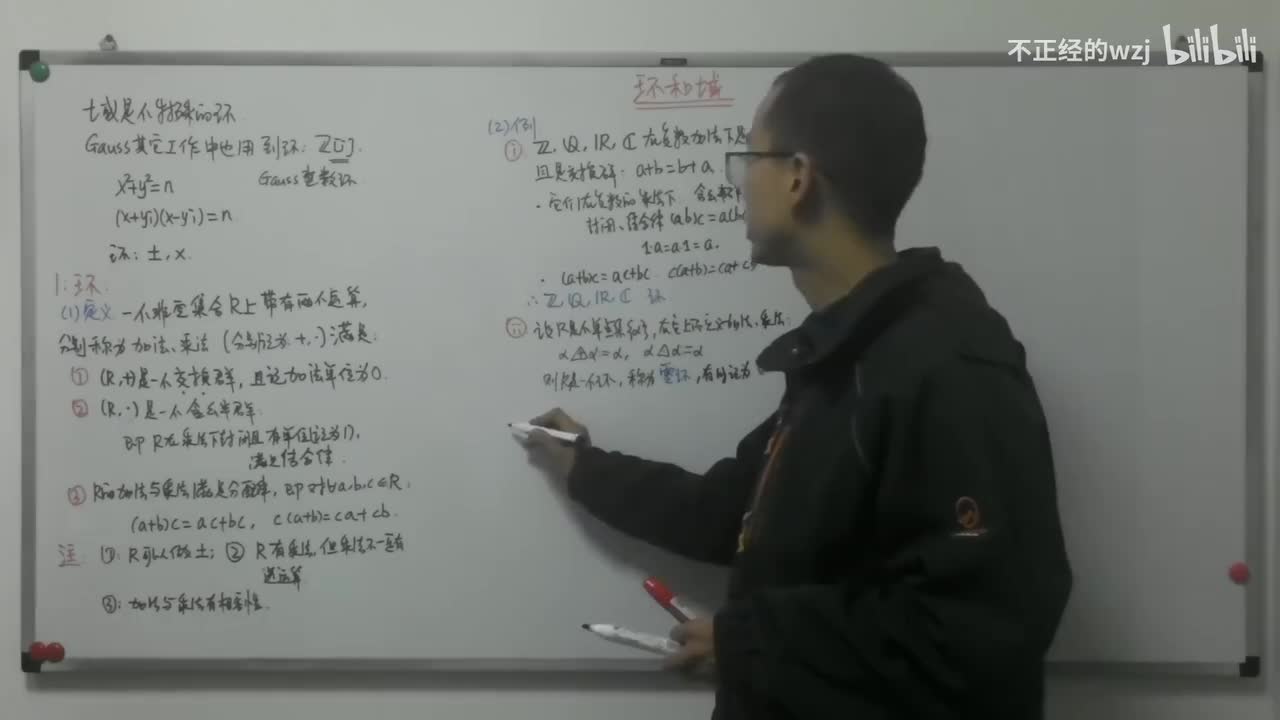 不正经的wzj bilibili
环和域
域是个特殊的环.
Gauss其它工作中也用到环: Z[i].
Gauss整数环
x²+y²=n
(x+yi)(x-yi)=n
环: ±, ×.
1. 环.
(1) 定义 一个非空集合R上带有两个运算,
分别称为加法、乘法 (分别记为 +, ·) 满足:
① (R,+)是一个交换群, 且记加法单位为0.
② (R, ·) 是一个含幺半群.
即 R在乘法下封闭且有单位(记为1),
满足结合律.
③ R的加法与乘法满足分配律, 即对∀a,b,c∈R,
(a+b)c=ac+bc, c(a+b)=ca+cb.
注 ①: R可以做±; ② R有乘法, 但乘法不一定有
逆运算
③: 加法与乘法有相容性.
(2) 例
① Z, Q, IR, C 在复数加法下是
且是交换群: a+b=b+a.
· 它们在复数的乘法下 含幺
封闭、结合律 (ab)c=a(bc
1·a=a·1=a.
· (a+b)c=ac+bc. c(a+b)=ca+c
∴ Z, Q, IR, C 环
ⅱ 设R是个单点集, 在它上定义加法、乘法:
α+α=α, α△α=α
则R是一个环, 称为零环, 有时记为